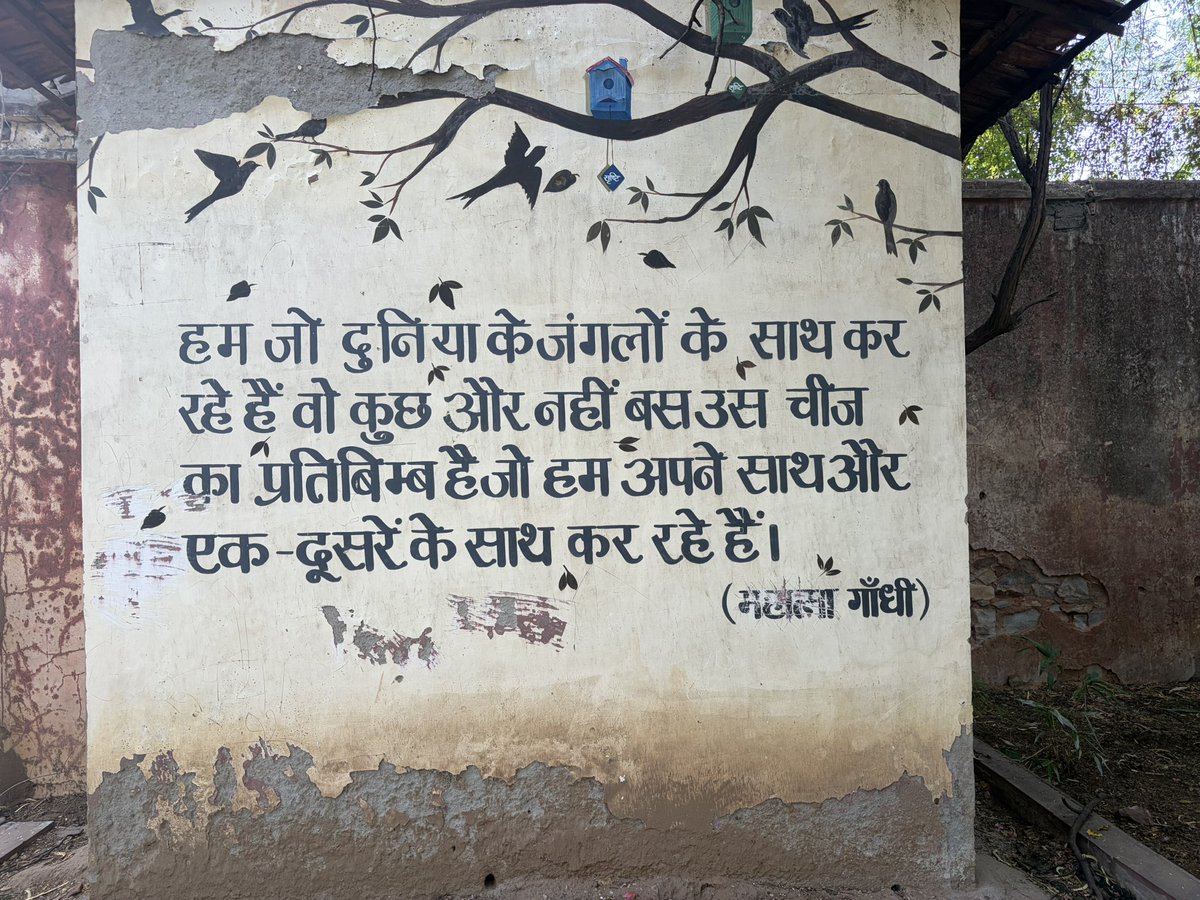 सृष्टि
हम जो दुनिया के जंगलों के साथ कर
रहे हैं वो कुछ और नहीं बस उस चीज
का प्रतिबिम्ब है जो हम अपने साथ और
एक-दूसरें के साथ कर रहे हैं।
(महात्मा गाँधी)